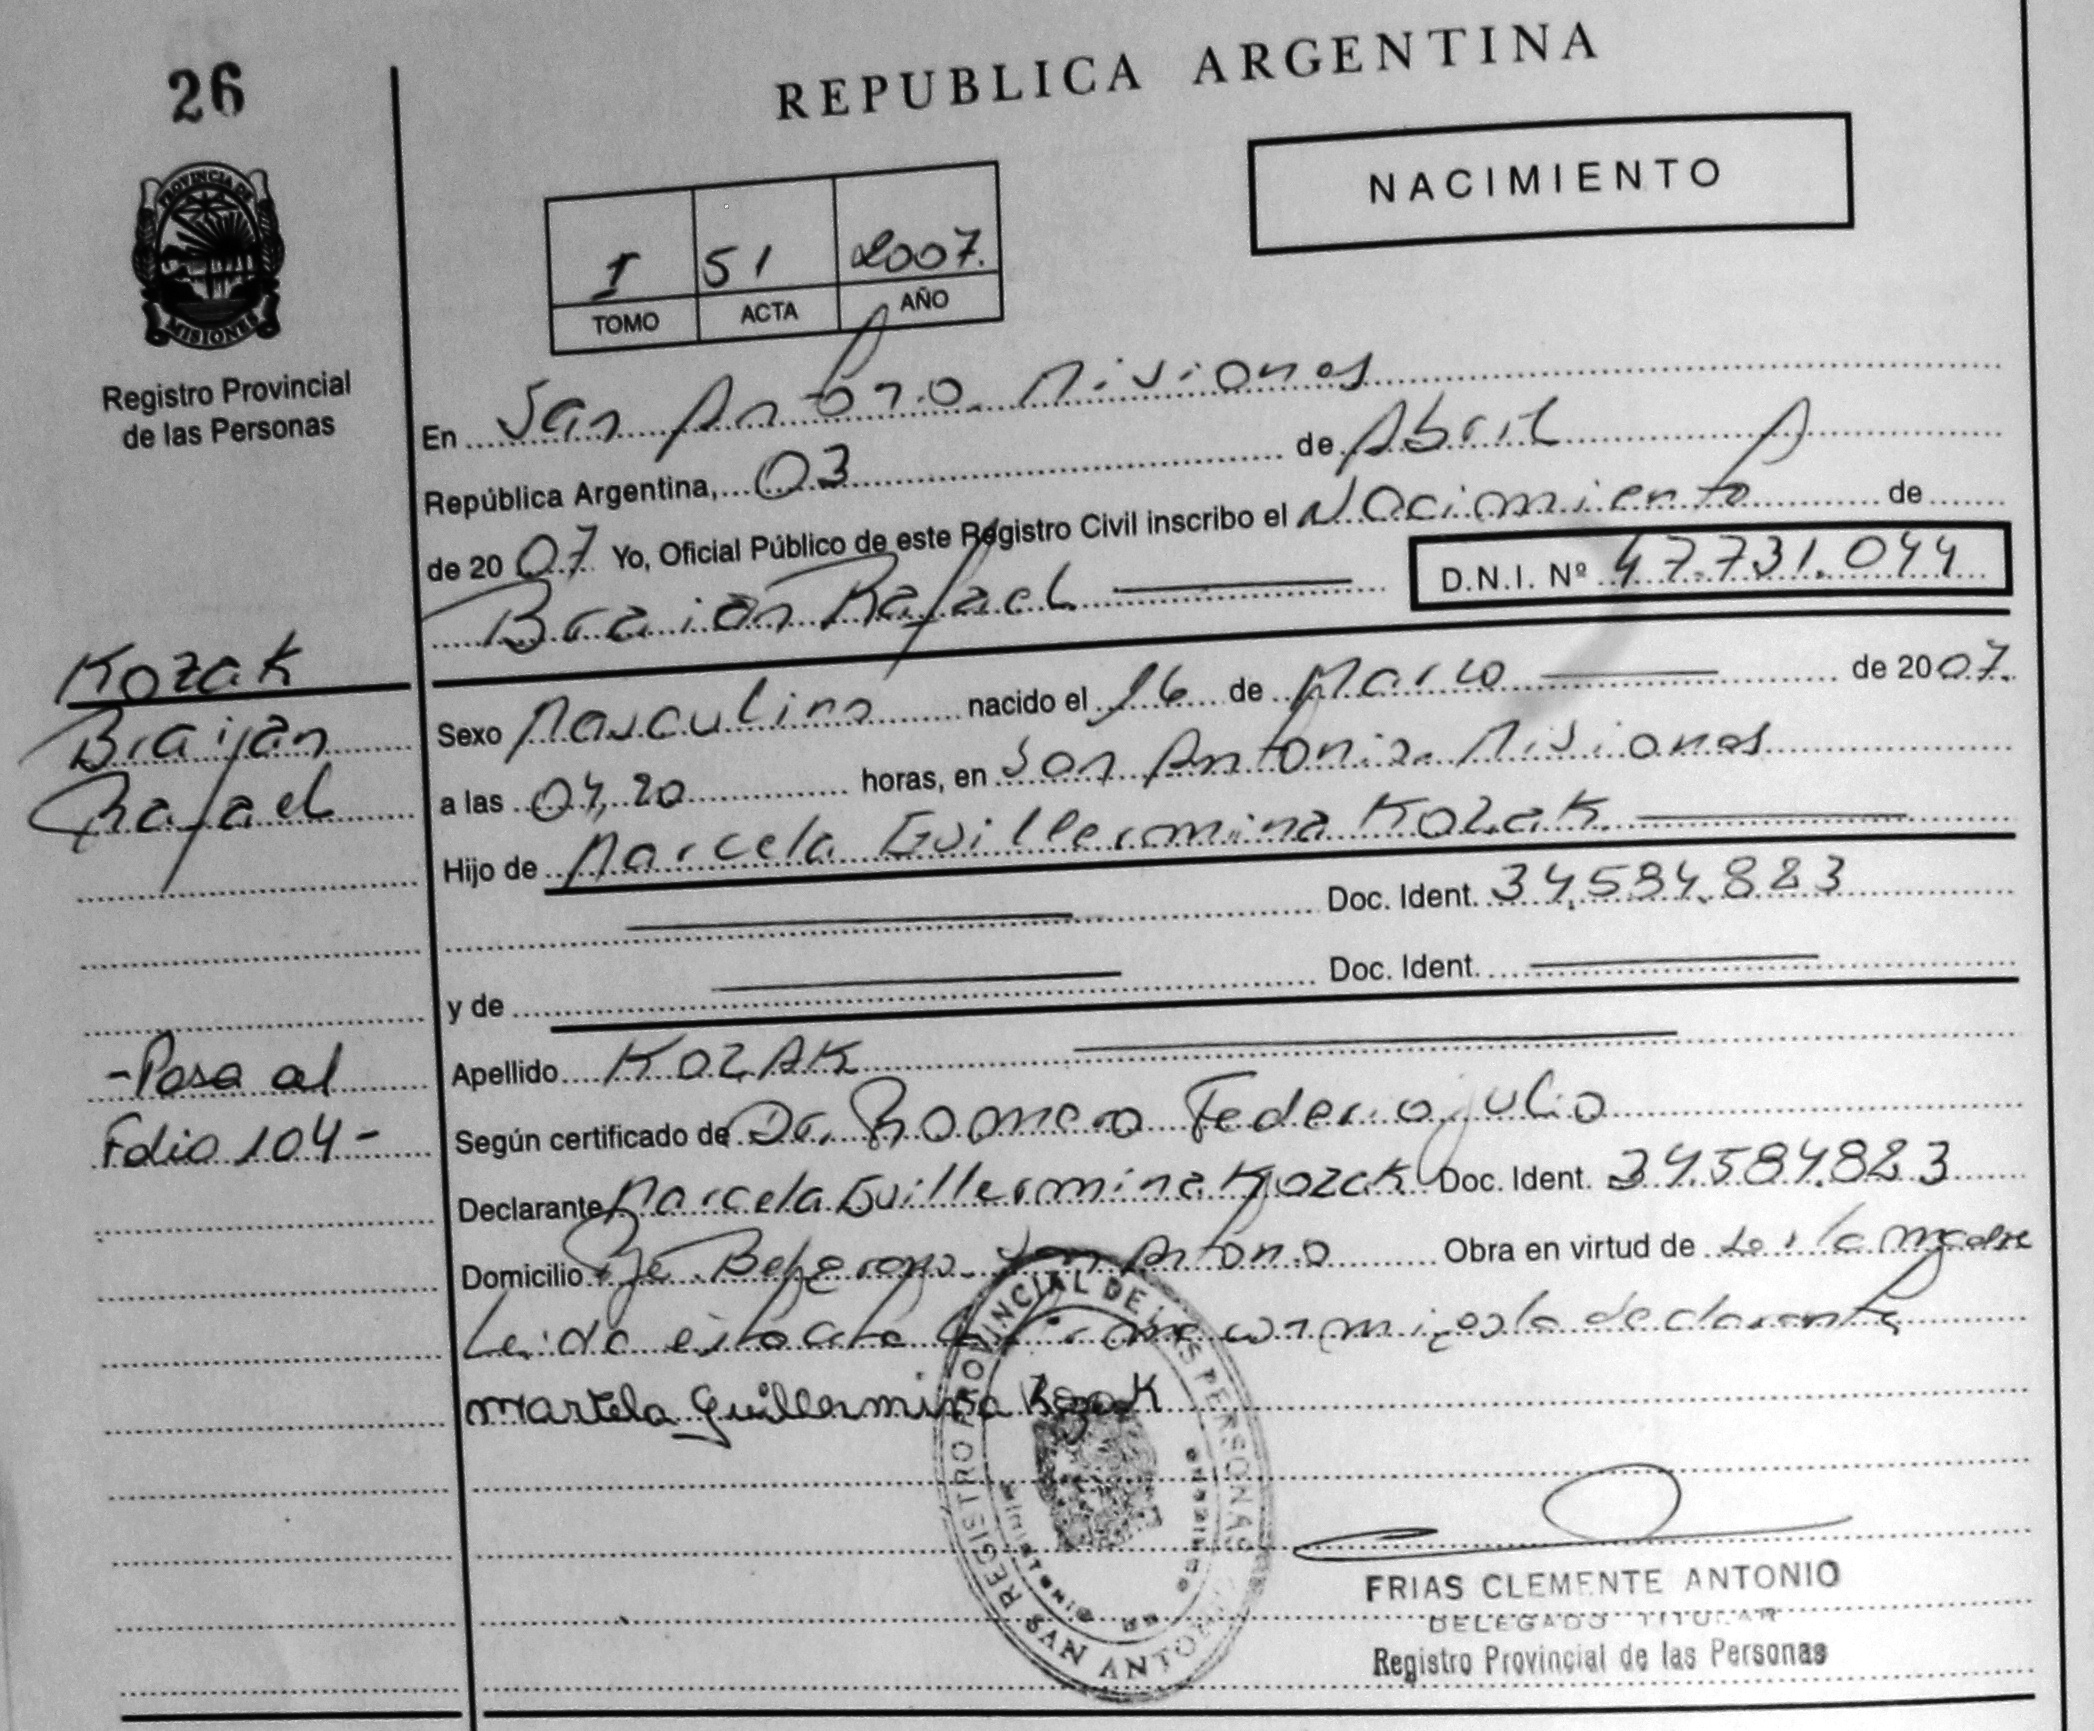 26
REPUBLICA ARGENTINA
NACIMIENTO
PROVINCIA DE
MISIONES
Registro Provincial
de las Personas
I 51 2007.
TOMO ACTA AÑO
En San Antonio. Misiones
República Argentina, 03 de Abril
de 2007 Yo, Oficial Público de este Registro Civil inscribo el Nacimiento de
Braian Rafael D.N.I. Nº 47.731.044
Kozak
Braian
Rafael
Sexo Masculino nacido el 16 de Marzo de 2007.
a las 04,20 horas, en San Antonio. Misiones
Hijo de Marcela Guillermina Kozak
Doc. Ident. 34.584.823
y de Doc. Ident.
-Pasa al
Folio 104-
Apellido KOZAK
Según certificado de Dr. Romero Federico julio
Declarante Marcela Guillermina Kozak Doc. Ident. 34.584.823
Domicilio Bº Belgrano. San Antonio Obra en virtud de ser la madre
Leida esta acta la firma conmigo la declarante
Marcela Guillermina Kozak
REGISTRO PROVINCIAL DE LAS PERSONAS
SAN ANTONIO
FRIAS CLEMENTE ANTONIO
DELEGADO TITULAR
Registro Provincial de las Personas